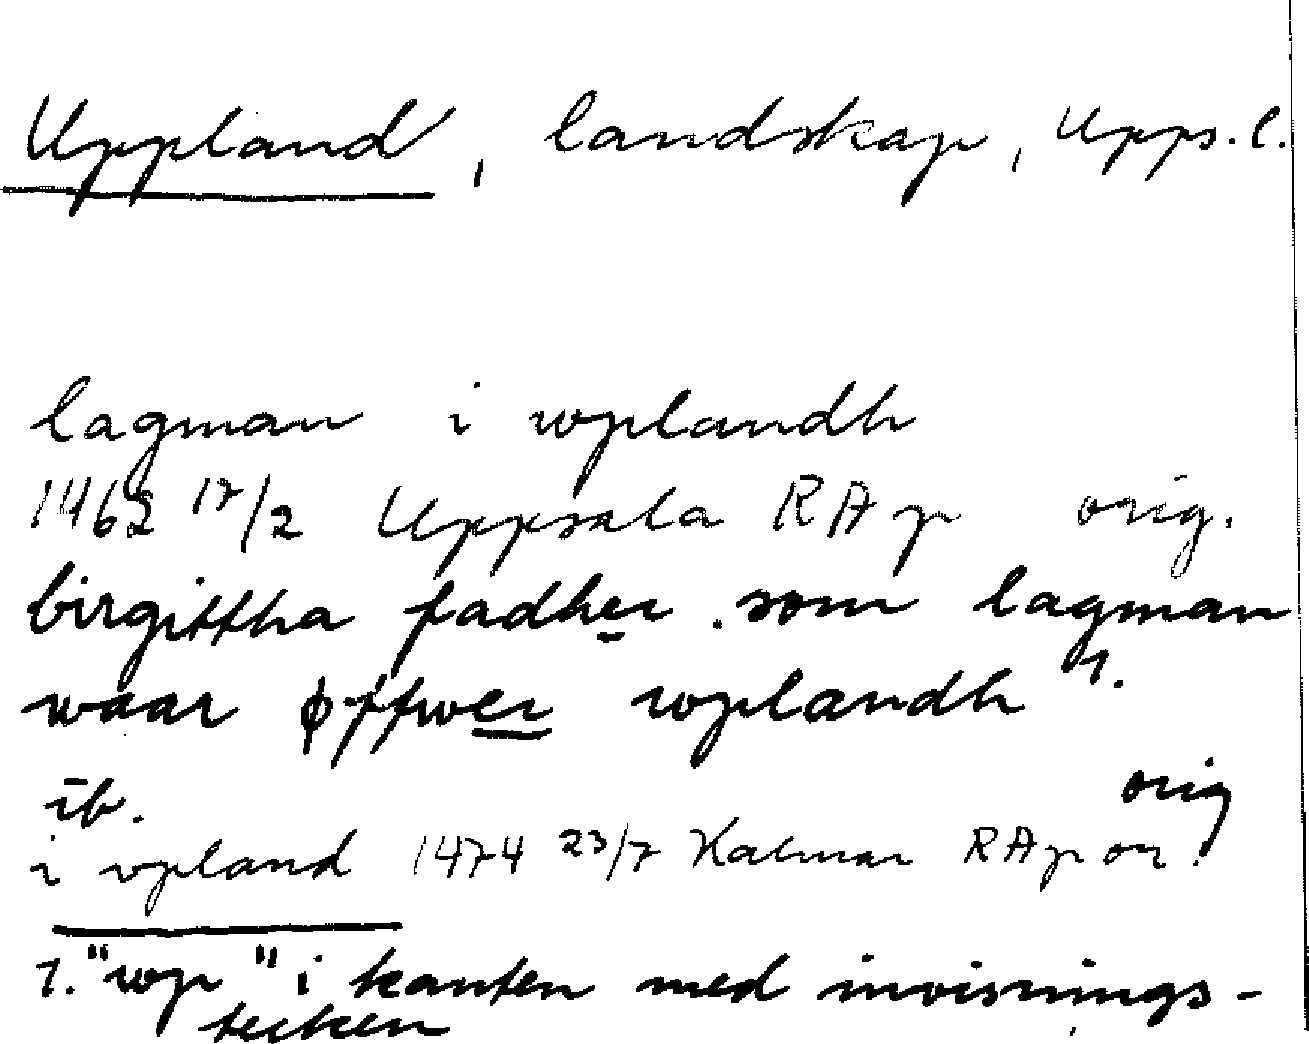 Uppland, landskap, Upps. l.
lagman i wplandh
1462 17/2 Uppsala RAp orig.
birgittha fadher. som lagman
waar øffwer wplandh 1.
ib. orig
i vpland 1474 23/7 Kalmar RAp or.
1. "wp" i kanten med invisnings-
tecken